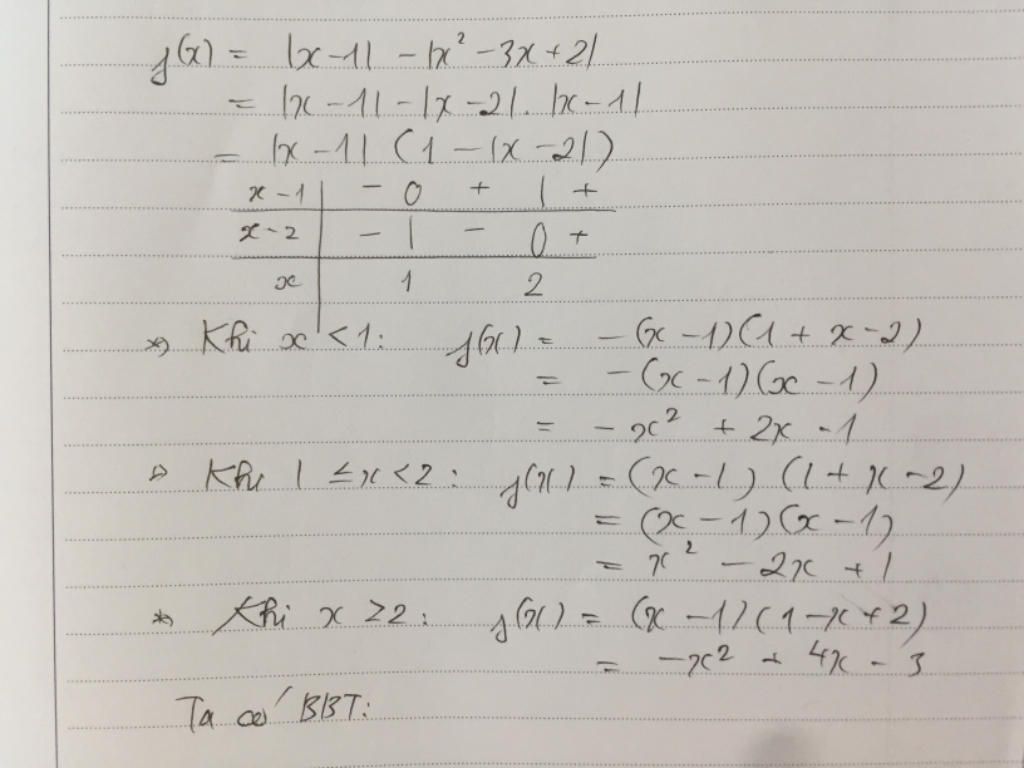 f(x) = |x-1| - |x² - 3x + 2|
= |x-1| - |x-2|. |x-1|
= |x-1| (1 - |x-2|)
x-1 | - 0 + | +
x-2 | - | - 0 +
x | 1 2
*) Khi x < 1: f(x) = -(x-1)(1+x-2)
= -(x-1)(x-1)
= -x² + 2x - 1
*) Khi 1 ≤ x < 2: f(x) = (x-1)(1+x-2)
= (x-1)(x-1)
= x² - 2x + 1
*) Khi x ≥ 2: f(x) = (x-1)(1-x+2)
= -x² + 4x - 3
Ta có BBT: